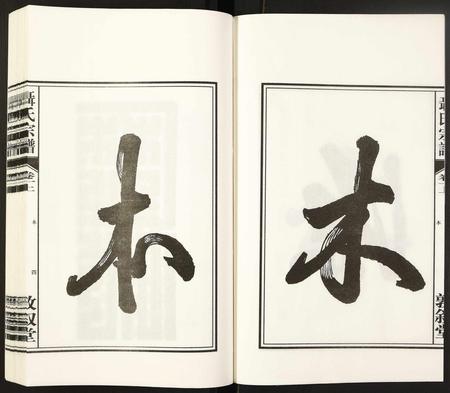 木
聶氏宗譜
卷二
木
敦叙堂
本
聶氏宗譜
卷二
木
四
敦叙堂